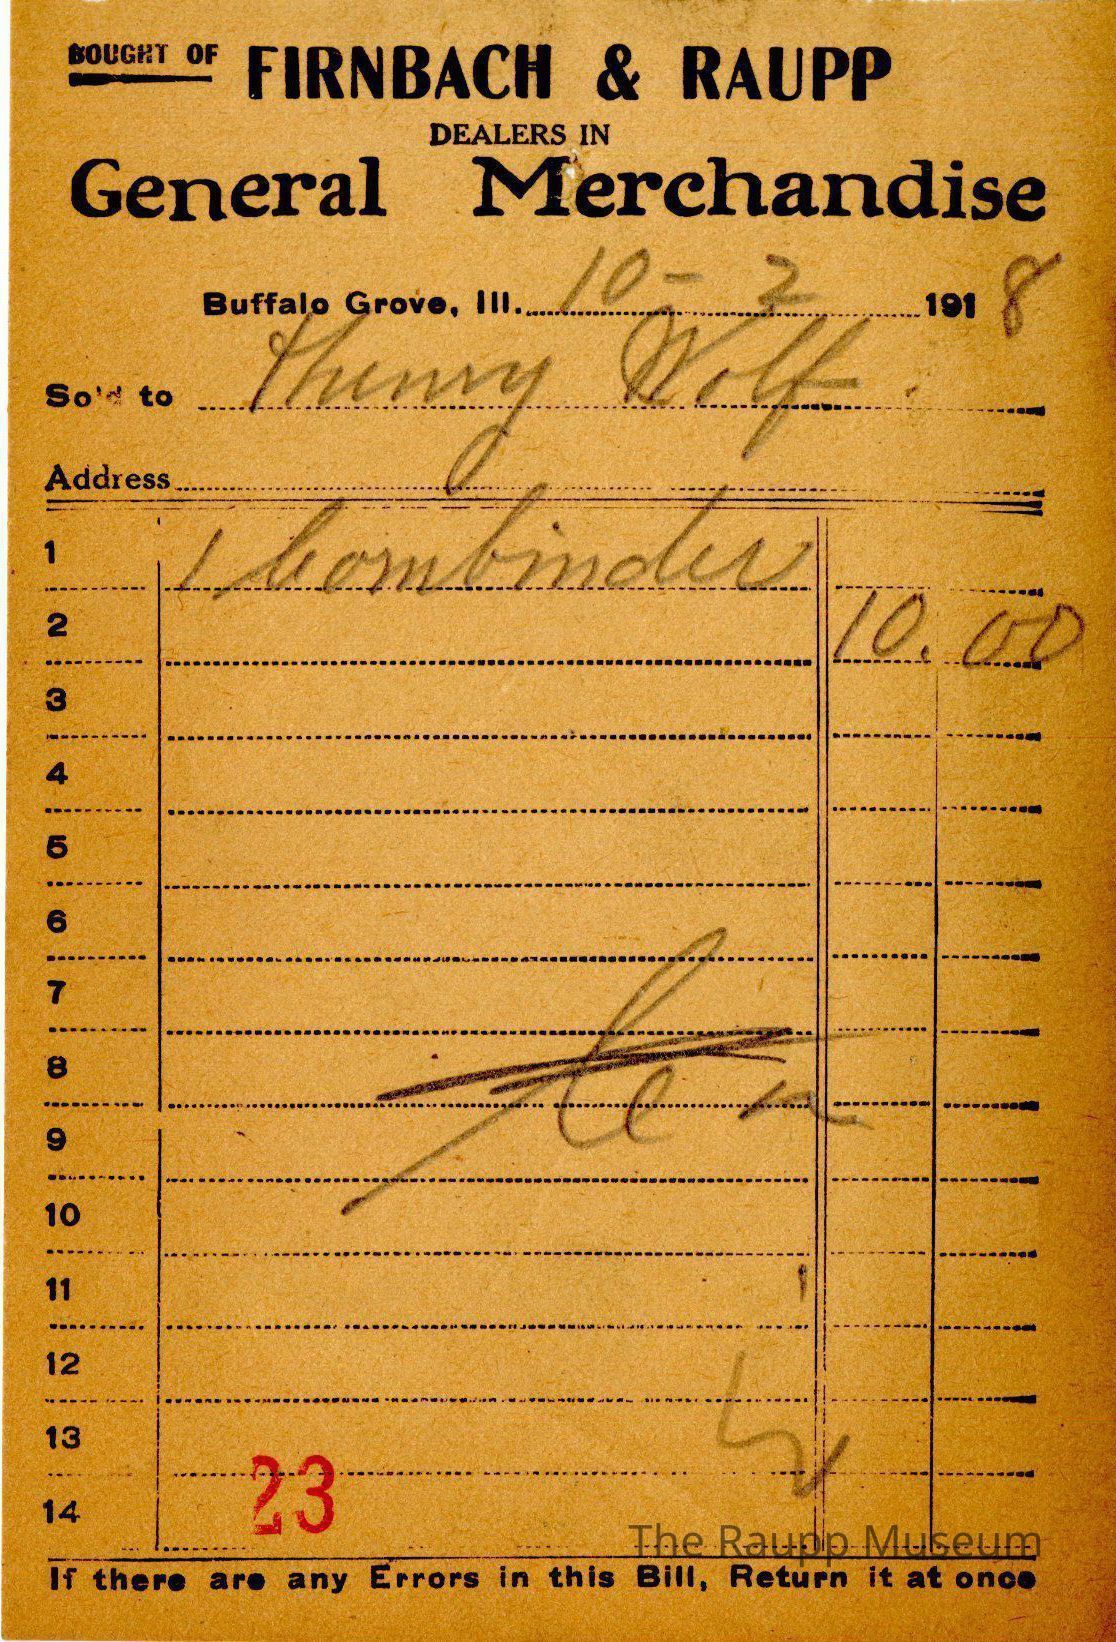 BOUGHT OF FIRNBACH & RAUPP
DEALERS IN
General Merchandise
Buffalo Grove, Ill. 10 - 2 1918
Sold to Henry Wolf.
Address
1 1 Cornbinder
2 10.00
3
4
5
6
7
8
9
10
11
12
13
14
23
The Raupp Museum
If there are any Errors in this Bill, Return it at once